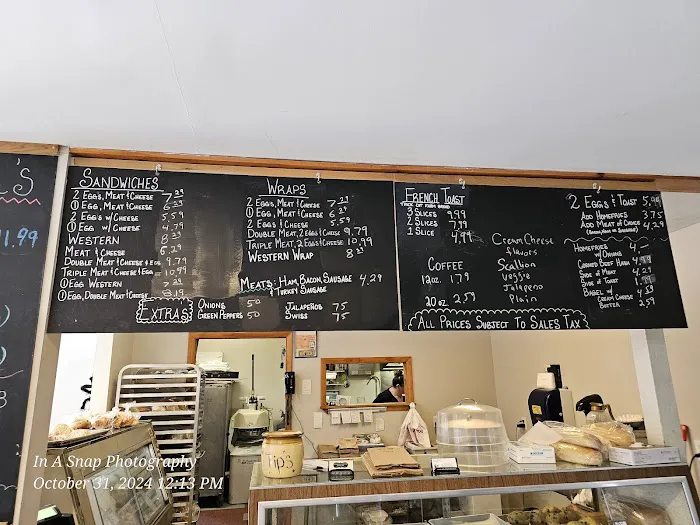 'S
11.99
SANDWICHES
2 EGG'S, MEAT & CHEESE 7.29
① EGG, MEAT & CHEESE 6.29
2 EGG'S w/ CHEESE 5.59
① EGG w/ CHEESE 4.79
WESTERN 8.29
MEAT & CHEESE 6.29
DOUBLE MEAT & CHEESE & EGG 9.79
TRIPLE MEAT & CHEESE & EGG 10.99
① EGG WESTERN 7.29
① EGG, DOUBLE MEAT & CHEESE
WRAPS
2 EGG, MEAT & CHEESE 7.29
① EGG, MEAT & CHEESE 6.29
2 EGGS & CHEESE 5.59
DOUBLE MEAT, 2 EGGS & CHEESE 9.79
TRIPLE MEAT, 2 EGGS & CHEESE 10.99
WESTERN WRAP 8.29
MEATS: HAM, BACON, SAUSAGE 4.29
& TURKEY SAUSAGE
EXTRAS
ONIONS 50
GREEN PEPPERS 50
JALAPEÑOS 75
SWISS 75
FRENCH TOAST
3 SLICES 9.99
2 SLICES 7.99
1 SLICE 4.99
COFFEE
12oz. 1.79
20oz 2.59
Cream Cheese
flavors
Scallion
Veggie
Jalapeno
Plain
2 EGGS & TOAST 5.99
ADD HOMEFRIES 3.75
ADD MEAT OF CHOICE 4.29
HOMEFRIES
w/ ONIONS
CORNED BEEF HASH
SIDE OF MEAT
SIDE OF TOAST
BAGEL w/
CREAM CHEESE 4.59
BUTTER 2.59
ALL PRICES SUBJECT TO SALES TAX
TIPS
In A Snap Photography
October 31, 2024 12:13 PM